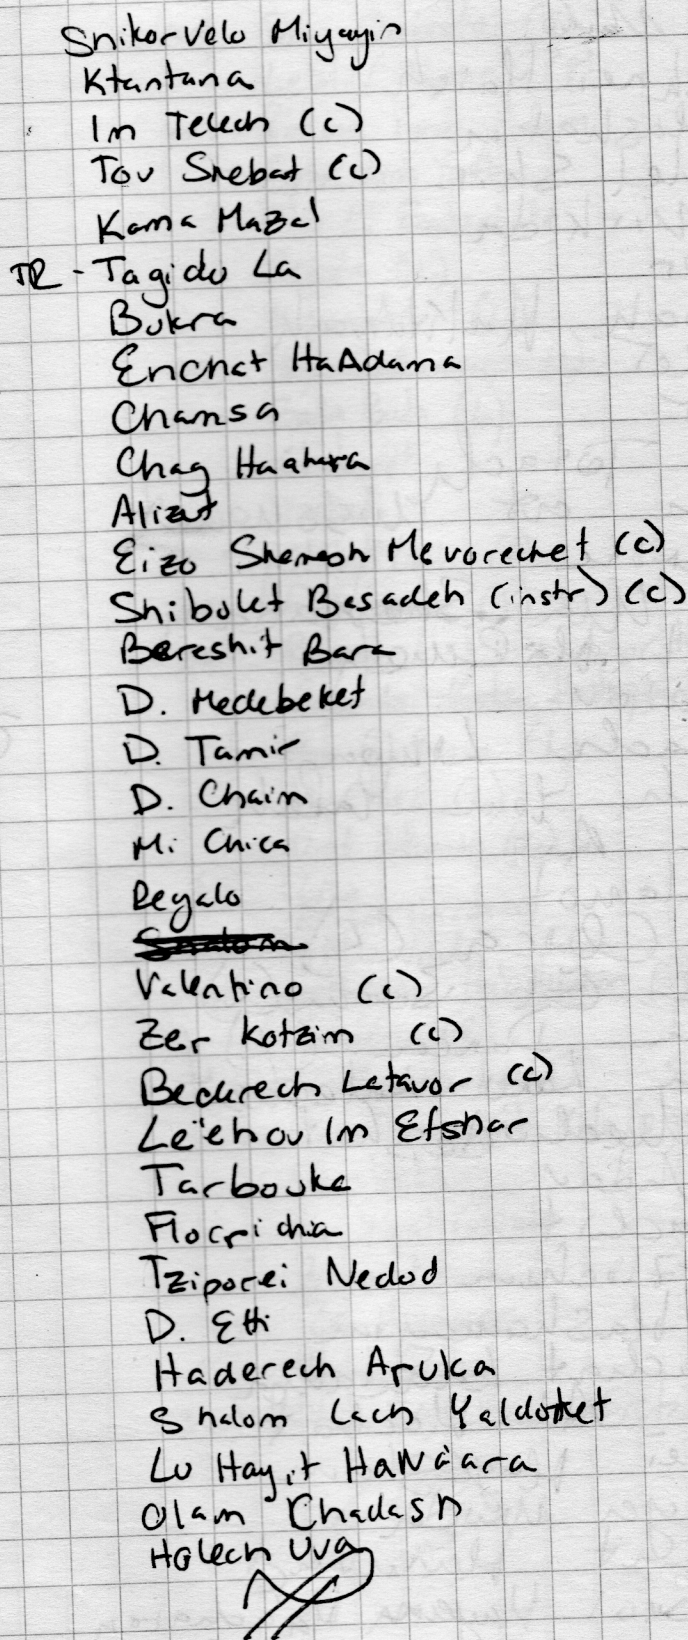 Shikor Velo Miyayin
Ktantana
Im Telech (c)
Tov Shebat (c)
Kama Mazal
TR - Tagidu La
Bukra
Enchat HaAdama
Chamsa
Chag
Alizut
Eizo Shemesh Mevorechet (c)
Shibolet Basadeh (instr) (c)
Bereshit Bara
D. Medebeket
D. Tamir
D. Chaim
Mi Chica
Regalo
Shalom
Valentino (c)
Zer Kotzim (c)
Bederech Letavor (c)
Le'ehov Im Efshar
Tarbouka
Tziporei Nedod
D. Etti
Haderech Aruka
Shalom Lach Yaldotket
Lu Hayit HaNa'ara
Olam Chadash
Holech Uva